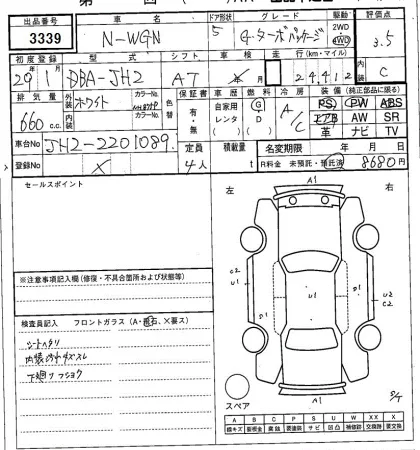 出品番号 車名 ドア形状 グレード 駆動 評価点
3339 N-WGN 5 G・ターボパッケージ 2WD 4WD 3.5
初度登録 型式 シフト 車検 走行(km・マイル) 内装
29年1月 DBA-JH2 AT 24,412 C
排気量 外装 カラーNo. 色替 保証書 車歴 燃料 冷房 装備(純正部品に限る)
660 c.c. ホワイト 有・無 自家用 レンタ G D A/C PS PW ABS
内装 カラーNo. エアB AW SR
革 ナビ TV
車台No JH2-2201089 定員 積載量 名変期限 年 月 日
登録No X 4人 t R料金 未預託・預託済 8680円
セールスポイント
左 右
A1
C2 U1
U1 D1 U1
U2 C2
※注意事項記入欄(修復・不具合箇所および状態等)
検査員記入 フロントガラス(A・飛石、×要ス)
シートヘタリ
内装汚れキズスレ
下廻りフショク
スペア
A1
A B C P S U W X XX
線キズ 要板金 腐蝕 要塗装 サビ 凹凸 補修跡 要交換 交換